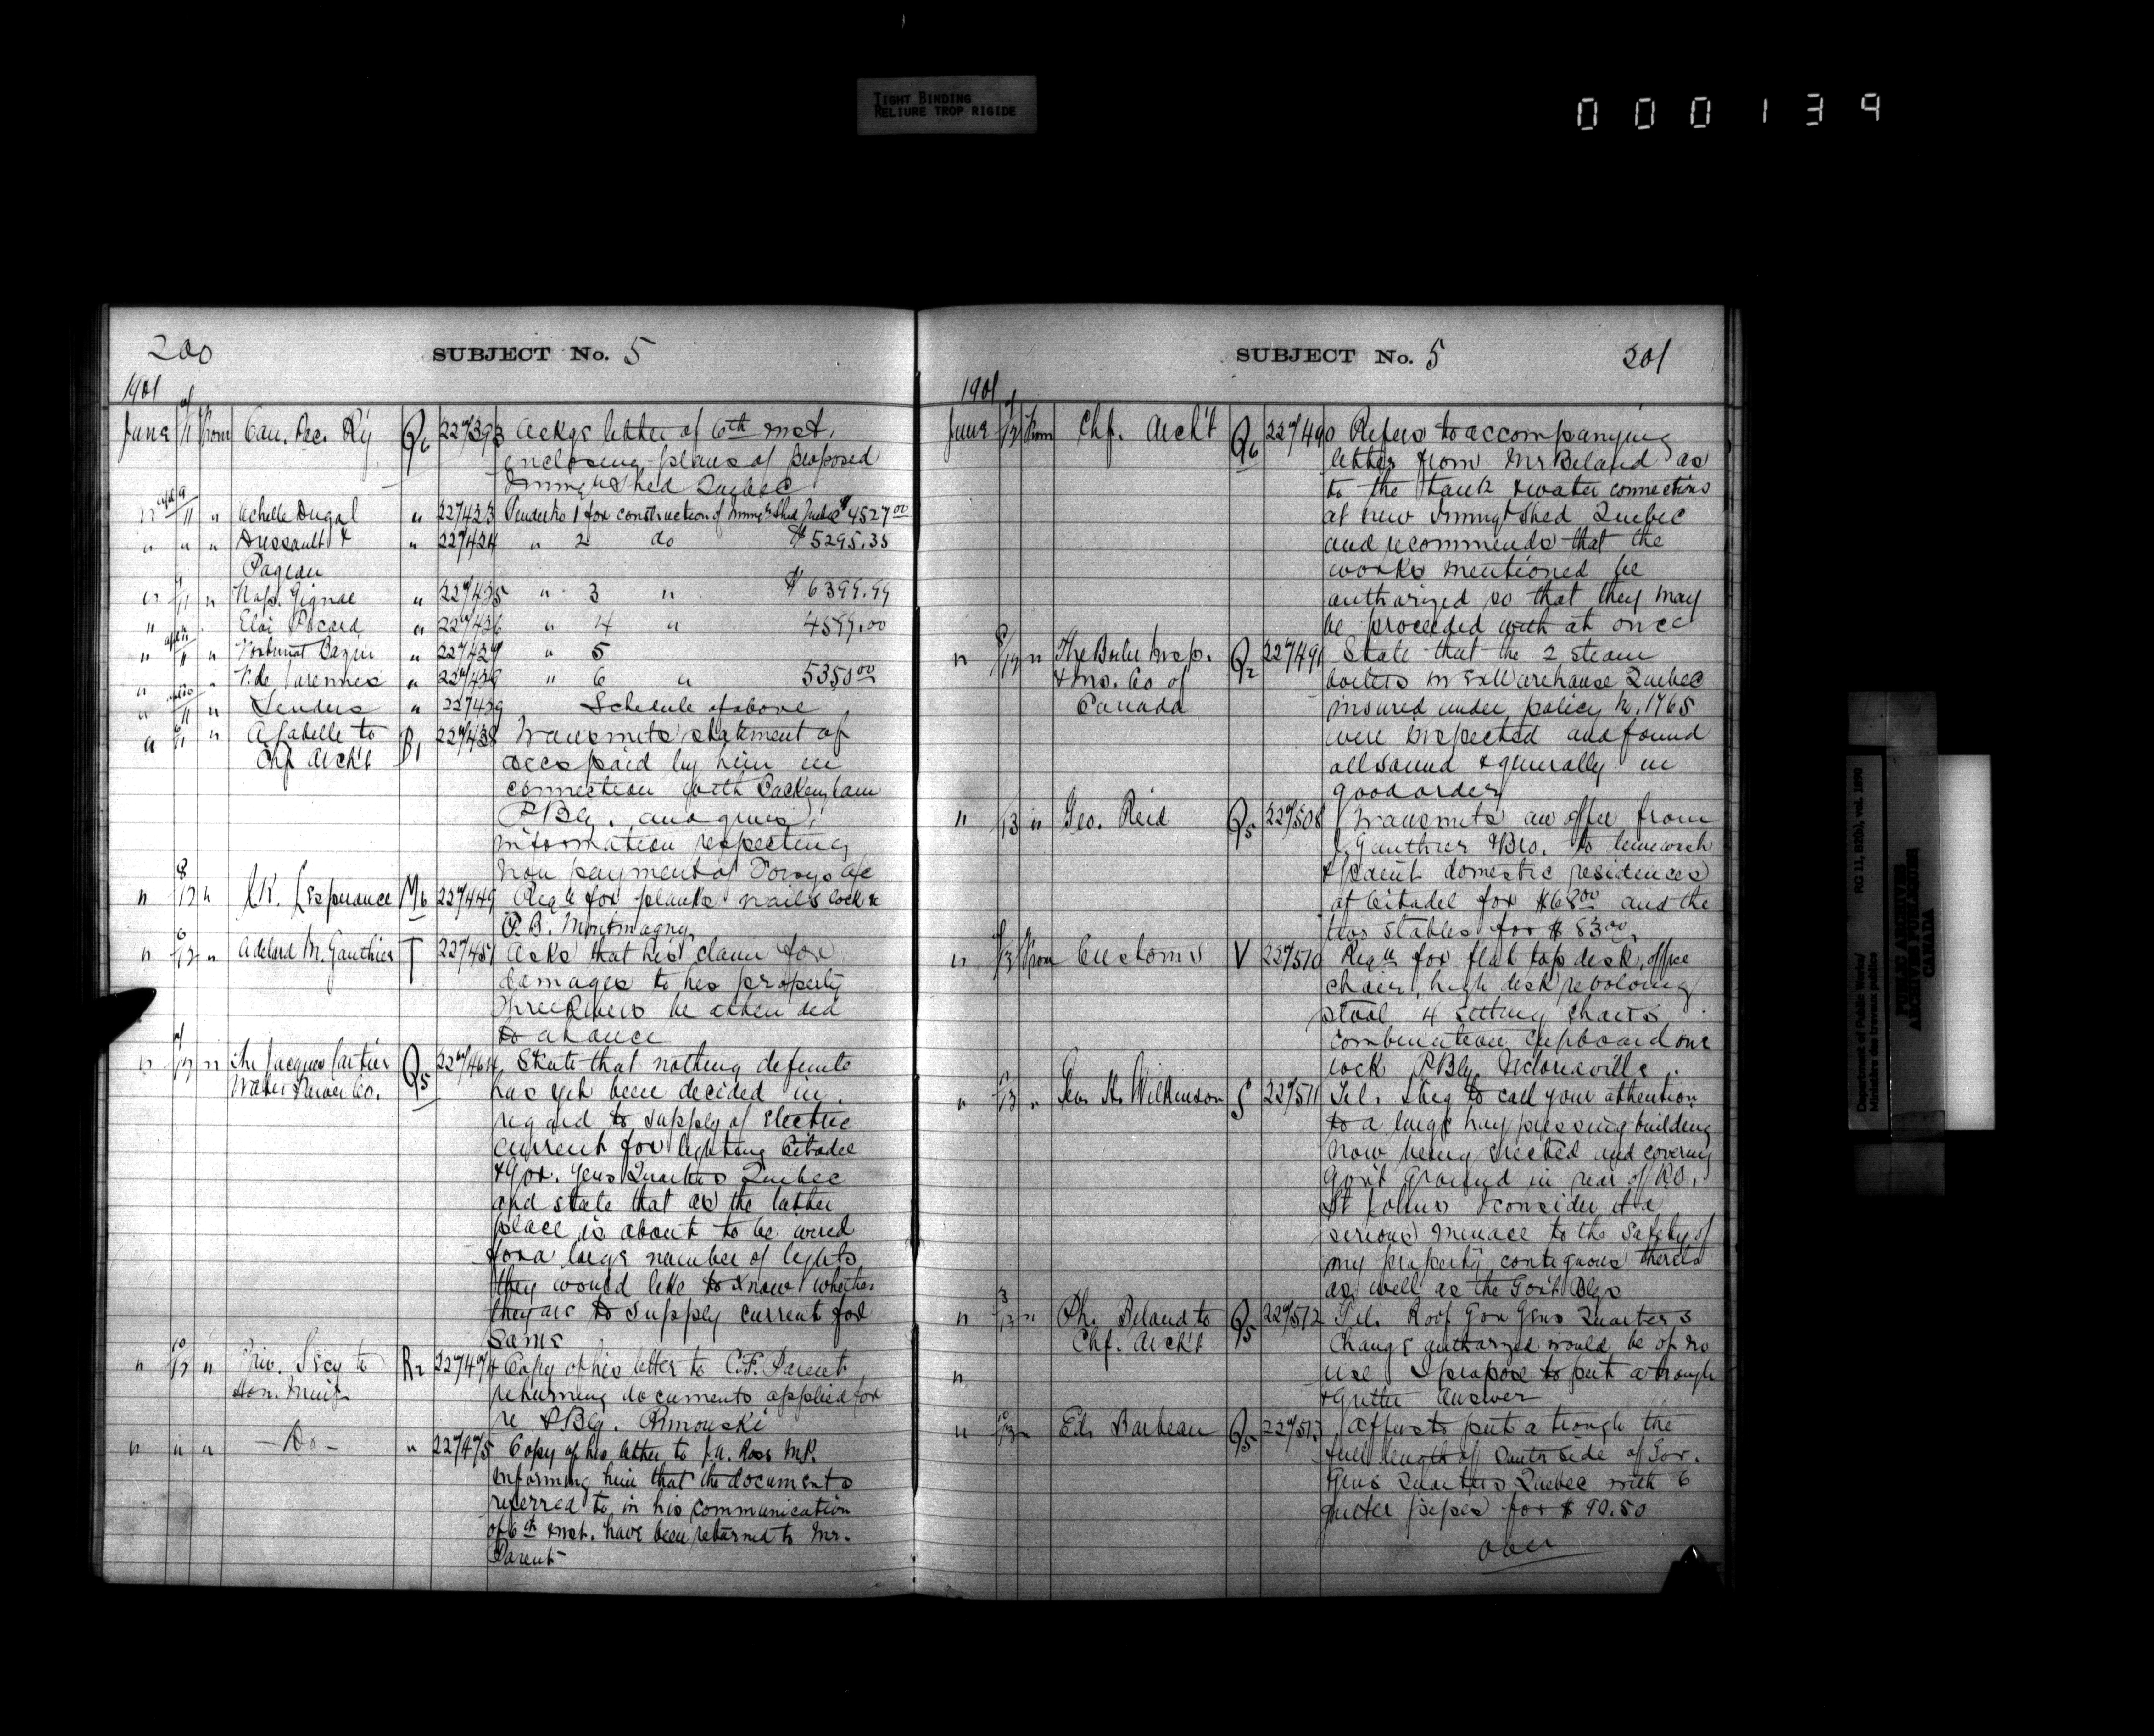 TIGHT BINDING
RELIURE TROP RIGIDE
000139
200
SUBJECT No. 5
1901
June 11 from Can. Pac. Ry Q6 227393 Ackgs letter of 6th inst.
enclosing plans of proposed
Immigt Shed Quebec
" 11 " Achille Dugal " 227433 Tender No 1 for construction of Immigt Shed Quebec $4527.00
" " " Dussault & " 227434 " 2 do $5295.35
Pageau
" 11 " Nap. Gignac " 227435 " 3 " $6399.99
" " Eloi Picard " 227436 " 4 " 4599.00
" 11 " Fortunat Bazin " 227437 " 5
" " V. de Varennes " 227438 " 6 " 5350.00
" 11 " Tenders " 227439 Schedule of above
" 11 " A Labelle to 22743 Transmits statement of
Chf Archt
accs paid by him in
connection with Packenham
P.Blg. and gives
information respecting
non payment of
" 8/12 " Lesperance M6 227449 Reqn for planks nails lock &
P.B. Montmagny
" 6/12 " Adelard M. Gauthier T 227451 Asks that his claim for
damages to his property
Three Rivers be attended
to at once
" 12 " The Jacques Cartier Q5 227464 State that nothing definite
Water Power Co.
has yet been decided in
regard to supply of Electric
current for lighting Citadel
& Gov. Gens Quarters Quebec
and state that as the latter
place is about to be wired
for a large number of lights
they would like to know whether
they are to supply current for
same
" 10/12 " Priv. Secy to R2 227474 Copy of his letter to C.F. Parent
Hon. Minis.
returning documents applied for
re P.Blg. Rimouski
" " " - Do - " 227475 Copy of his letter to J.A. Ross M.P.
informing him that the documents
referred to in his communication
of 6th inst. have been returned to Mr.
Parent
SUBJECT No. 5
201
1901
June 12 from Chf. Archt Q6 227490 Refers to accompanying
letter from Mr Beland as
to the tank & water connections
at new Immigt Shed Quebec
and recommends that the
works mentioned be
authorized so that they may
be proceeded with at once
" 8/12 " The Boiler Insp. Q2 227491 State that the 2 steam
& Ins. Co of
boilers in Ex Warehouse Quebec
Canada
insured under policy No. 1765
were inspected and found
all sound & generally in
good order
" 13 " Geo. Reid Q5 227508 Transmits an offer from
J. Gauthier & Bro. to limewash
& paint domestic residences
at Citadel for $68.00 and the
two stables for $83.00
" 13 from Customs V 227510 Reqn for flat top desk, office
chair, high desk revolving
stool 4 sitting chairs
combination cupboard one
lock P.Blg. Victoriaville.
" 13 " Geo. H. Wilkinson S 227511 Tel. I beg to call your attention
to a large hay pressing building
now being erected and covering
Govt ground in rear of P.O.
St Johns & consider it a
serious menace to the safety of
my property contiguous thereto
as well as the Govt Blgs
" 3/13 " Ph. Beland to Q5 227512 Tel. Roof Gov Gens Quarters
Chf. Archt
change authorized would be of no
" use I propose to put a trough
& gutter Answer
" 13 " Ed. Barbeau Q5 227513 Offers to put a trough the
full length of south side of Gov.
Gens Quarters Quebec with 6
gutter pipes for $90.50
over
Department of Public Works/
Ministère des travaux publics
RG 11, B2(b), vol. 1690
PUBLIC ARCHIVES
ARCHIVES PUBLIQUES
CANADA